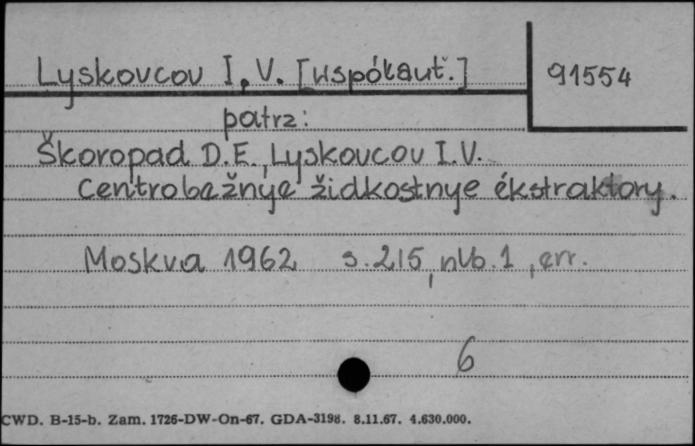 Lyskovcov I.V. [współaut.]
91554
patrz:
Škoropad D.E., Lyskovcov I.V.
Centrobežnye židkostnye ékstraktory.
Moskva 1962 s. 215, nlb. 1, err.
6
CWD. B-15-b. Zam. 1726-DW-On-67. GDA-3198. 8.11.67. 4.630.000.